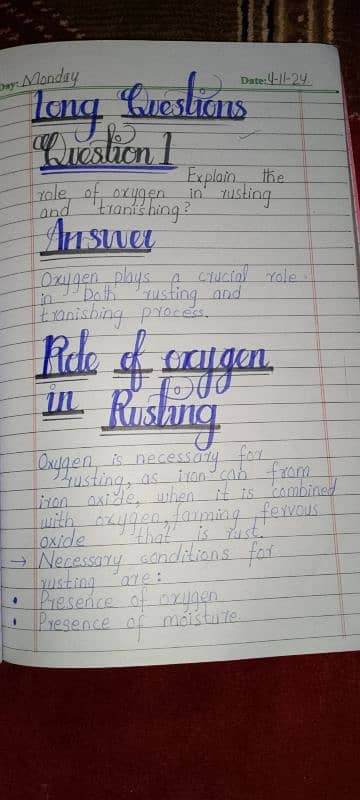 Day: Monday Date: 4-11-24
Long Questions
Question 1
Explain the
role of oxygen in rusting
and tranishing?
Answer
Oxygen plays a crucial role
in both rusting and
tranishing process.
Role of oxygen
in Rusting
Oxygen is necessary for
rusting, as iron can from
iron oxide, when it is combined
with oxygen, farming ferrous
oxide that is rust.
→ Necessary conditions for
rusting are:
• Presence of oxygen
• Presence of moisture.